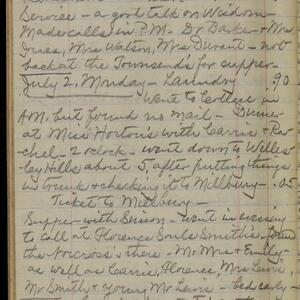 Service - a good talk on Wisdom -
Made calls in P.M. Dr Barker & Mrs
Ines, Mrs Watson, Mrs Durant - not
back at the Townsends for supper -
July 2, Monday - Laundry .90
Went to College in
A.M. but found no mail - Dinner
at Miss Horton's with Carrie & Ra-
chel. 2 o'clock - went down to Welles-
ley Hills about 5, after putting things
in trunk & checking it to Millbury - .05
Ticket to Millbury -
Supper with - went in evening
to call at Florence Soule Smith's, found
the Norcross's there - Mr. Mrs & Emily -
as well as Carrie, Florence, Mrs Lewis,
Mr Smith & young Mr Lewis - bed early -